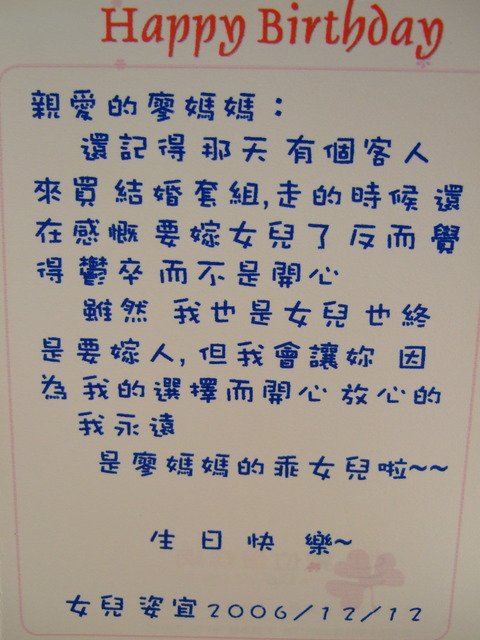 Happy Birthday
親愛的廖媽媽：
還記得那天有個客人
來買結婚套組,走的時候還
在感慨要嫁女兒了反而覺
得鬱卒而不是開心
雖然 我也是女兒也終
是要嫁人,但我會讓妳 因
為我的選擇而開心放心的
我永遠
是廖媽媽的乖女兒啦~~
生日快樂~
女兒姿宜2006/12/12